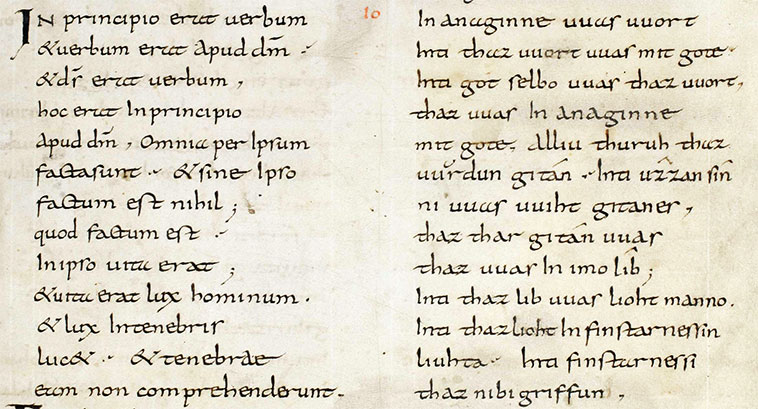 IN principio erat uerbum
&uerbum erat apud dm̄ ·
&ds̄ erat uerbum,
hoc erat Inprincipio
apud dm̄, Omnia per Ipsum
factasunt · &sine Ipso
factum est nihil;
quod factum est ·
Inipso uita erat;
&uita erat lux hominum.
& lux Intenebris
luc& · &tenebrae
eam non comprehenderunt.
Io
In anaginne uuas uuort
Inti thaz uuort uuas mit gote ·
Inti got selbo uuas thaz uuort,
thaz uuas In anaginne
mit gote, Alliu thuruh thaz
uuúrdun gitán · Inti ûzzan sîn
ni uuas uuiht gitanes,
thaz thar gitán uuas
thaz uuas In imo lîb;
Inti thaz lib uuas lioht manno.
Inti thaz lioht In finstarnessin
liuhta · Inti finstarnessi
thaz nibigriffun,